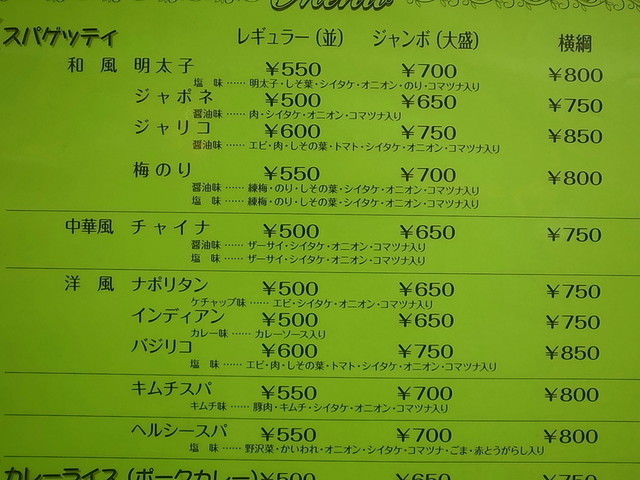 Menu
スパゲッティ レギュラー(並) ジャンボ(大盛) 横綱
和風 明太子 ￥550 ￥700 ￥800
塩味 …… 明太子・しそ葉・シイタケ・オニオン・のり・コマツナ入り
ジャポネ ￥500 ￥650 ￥750
醤油味 …… 肉・シイタケ・オニオン・コマツナ入り
ジャリコ ￥600 ￥750 ￥850
醤油味 …… エビ・肉・しその葉・トマト・シイタケ・オニオン・コマツナ入り
梅のり ￥550 ￥700 ￥800
醤油味 …… 練梅・のり・しその葉・シイタケ・オニオン・コマツナ入り
塩味 …… 練梅・のり・しその葉・シイタケ・オニオン・コマツナ入り
中華風 チャイナ ￥500 ￥650 ￥750
醤油味 …… ザーサイ・シイタケ・オニオン・コマツナ入り
塩味 …… ザーサイ・シイタケ・オニオン・コマツナ入り
洋風 ナポリタン ￥500 ￥650 ￥750
ケチャップ味 …… エビ・シイタケ・オニオン・コマツナ入り
インディアン ￥500 ￥650 ￥750
カレー味 …… カレーソース入り
バジリコ ￥600 ￥750 ￥850
塩味 …… エビ・肉・しその葉・トマト・シイタケ・オニオン・コマツナ入り
キムチスパ ￥550 ￥700 ￥800
キムチ味 …… 豚肉・キムチ・シイタケ・オニオン・コマツナ入り
ヘルシースパ ￥550 ￥700 ￥800
塩味 …… 野沢菜・かいわれ・オニオン・シイタケ・コマツナ・ごま・赤とうがらし入り
カレーライス(ポークカレー) ￥500 ￥650 ￥750